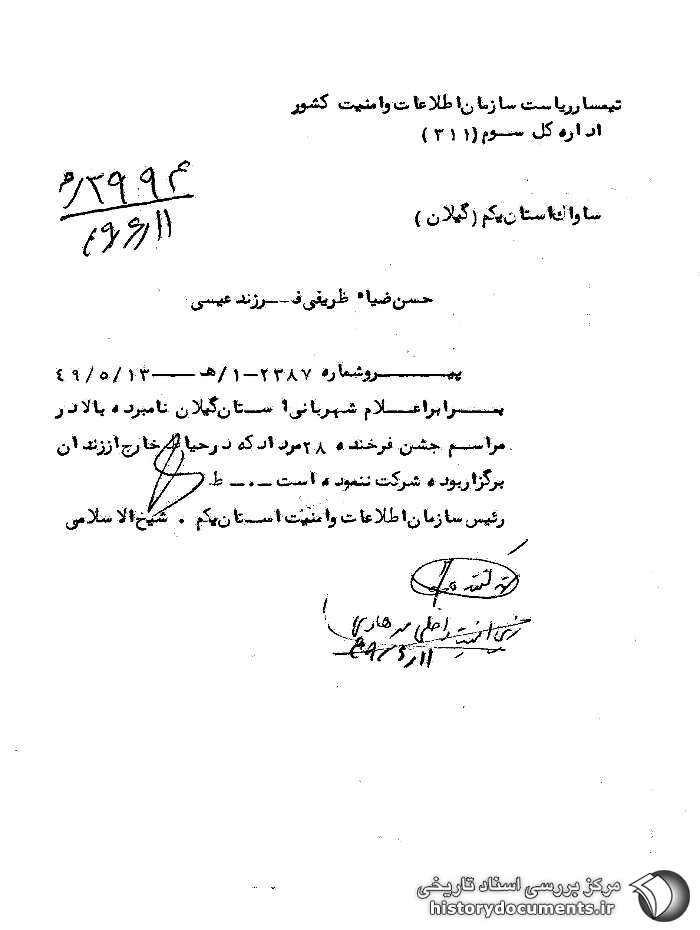 تیمسار ریاست سازمان اطلاعات و امنیت کشور
اداره کل سوم (۳۱۱)
۳۹۹۴/ه
۱۱/۶/۴۹
ساواک استان یکم (گیلان)
حسن ضیاء ظریفی فرزند عیسی
پیرو شماره ۲۳۸۷-۱/هـ ـــ ۱۳/۵/۴۹
بنا برابر اعلام شهربانی استان گیلان نامبرده بالا در
مراسم جشن فرخنده ۲۸ مرداد که در حیاط خارج از زندان
برگزار بوده شرکت ننموده است -۰- ط
رئیس سازمان اطلاعات و امنیت استان یکم . شیخ الاسلامی
رئیس امنیت داخلی
۱۱/۶/۴۹
مرکز بررسی اسناد تاریخی
historydocuments.ir